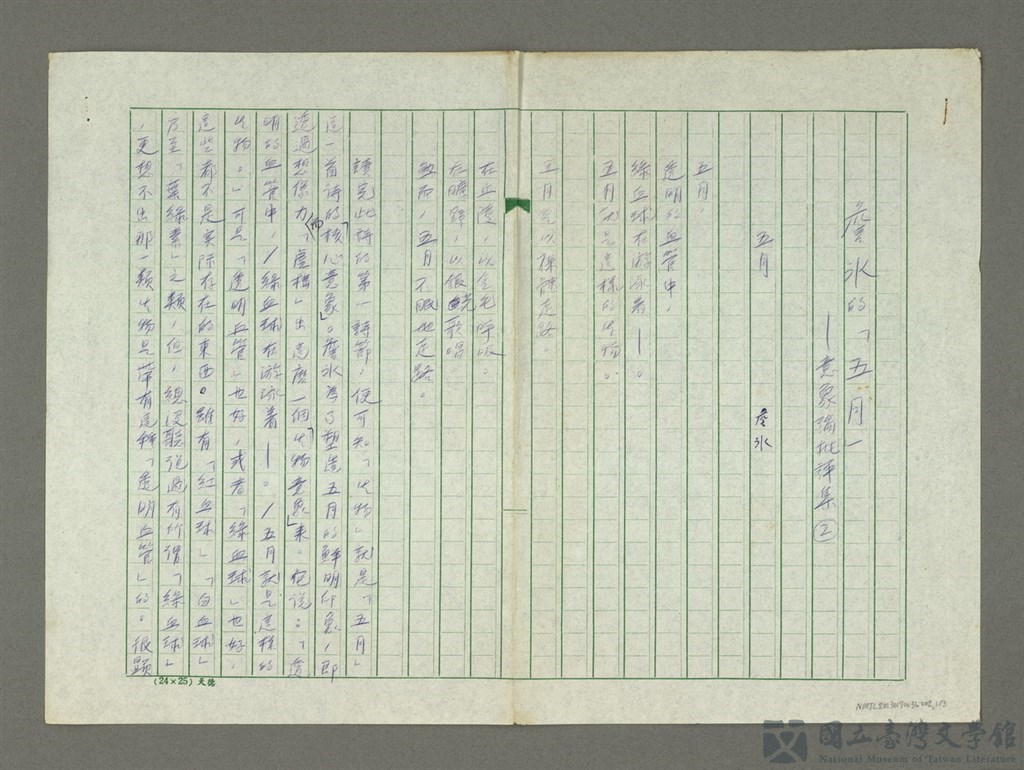 詹氷的「五月」
—意象論批評集②
五月
詹氷
五月，
透明的血管中，
綠血球在游泳着——。
五月就是這樣的生物。
五月是以裸體走路。
在丘陵，以金毛呼吸。
在曠野，以銀光歌唱。
於是，五月不眠地走路。
讀完此詩的第一詩節，便可知「生物」就是「五月」
這一首詩的「核心意象」。詹氷為了塑造五月的鮮明印象，即
透過想像力，而「虛構」出這麼一個「生物意象」來。他說：「透
明的血管中，／綠血球在游泳着——。／五月就是這樣的
生物。」可是「透明血管」也好，或者「綠血球」也好，
這些都不是實際存在的東西。雖有「紅血球」「白血球」
乃至「葉綠素」之類，但，總沒聽說過有所謂「綠血球」
，更想不出那一類生物是帶有這種「透明血管」的。很顯
(24×25)天德
國立臺灣文學館
National Museum of Taiwan Literature